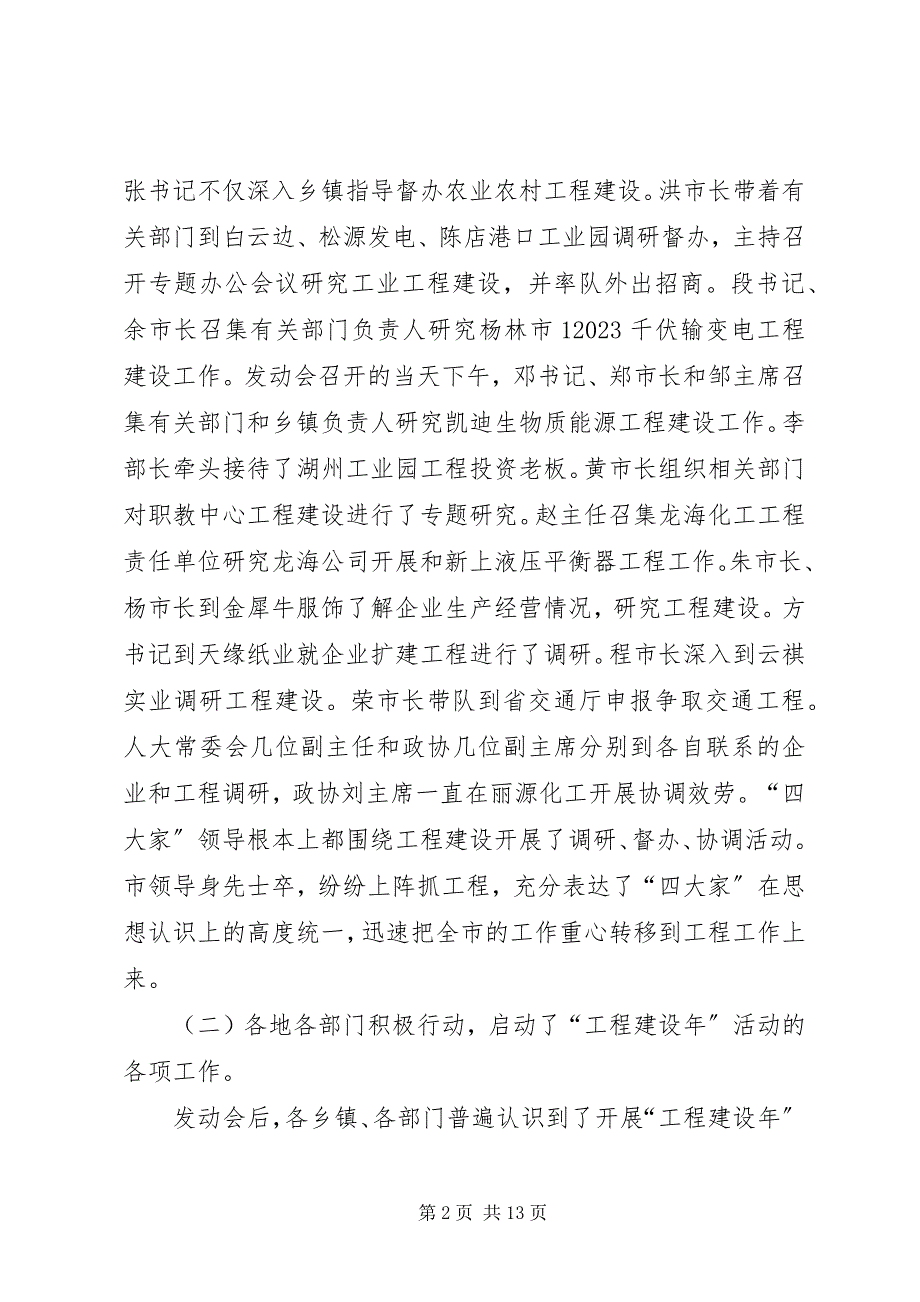 张书记不仅深入乡镇指导督办农业农村工程建设。洪市长带着有
关部门到白云边、松源发电、陈店港口工业园调研督办，主持召
开专题办公会议研究工业工程建设，并率队外出招商。段书记、
余市长召集有关部门负责人研究杨林市 12023 千伏输变电工程
建设工作。发动会召开的当天下午，邓书记、郑市长和邹主席召
集有关部门和乡镇负责人研究凯迪生物质能源工程建设工作。李
部长牵头接待了湖州工业园工程投资老板。黄市长组织相关部门
对职教中心工程建设进行了专题研究。赵主任召集龙海化工工程
责任单位研究龙海公司开展和新上液压平衡器工程工作。朱市长、
杨市长到金犀牛服饰了解企业生产经营情况，研究工程建设。方
书记到天缘纸业就企业扩建工程进行了调研。程市长深入到云祺
实业调研工程建设。荣市长带队到省交通厅申报争取交通工程。
人大常委会几位副主任和政协几位副主席分别到各自联系的企
业和工程调研，政协刘主席一直在丽源化工开展协调效劳。“四
大家〞领导根本上都围绕工程建设开展了调研、督办、协调活动。
市领导身先士卒，纷纷上阵抓工程，充分表达了“四大家〞在思
想认识上的高度统一，迅速把全市的工作重心转移到工程工作上
来。
（二）各地各部门积极行动，启动了“工程建设年〞活动的
各项工作。
发动会后，各乡镇、各部门普遍认识到了开展“工程建设年〞
第 2 页 共 13 页